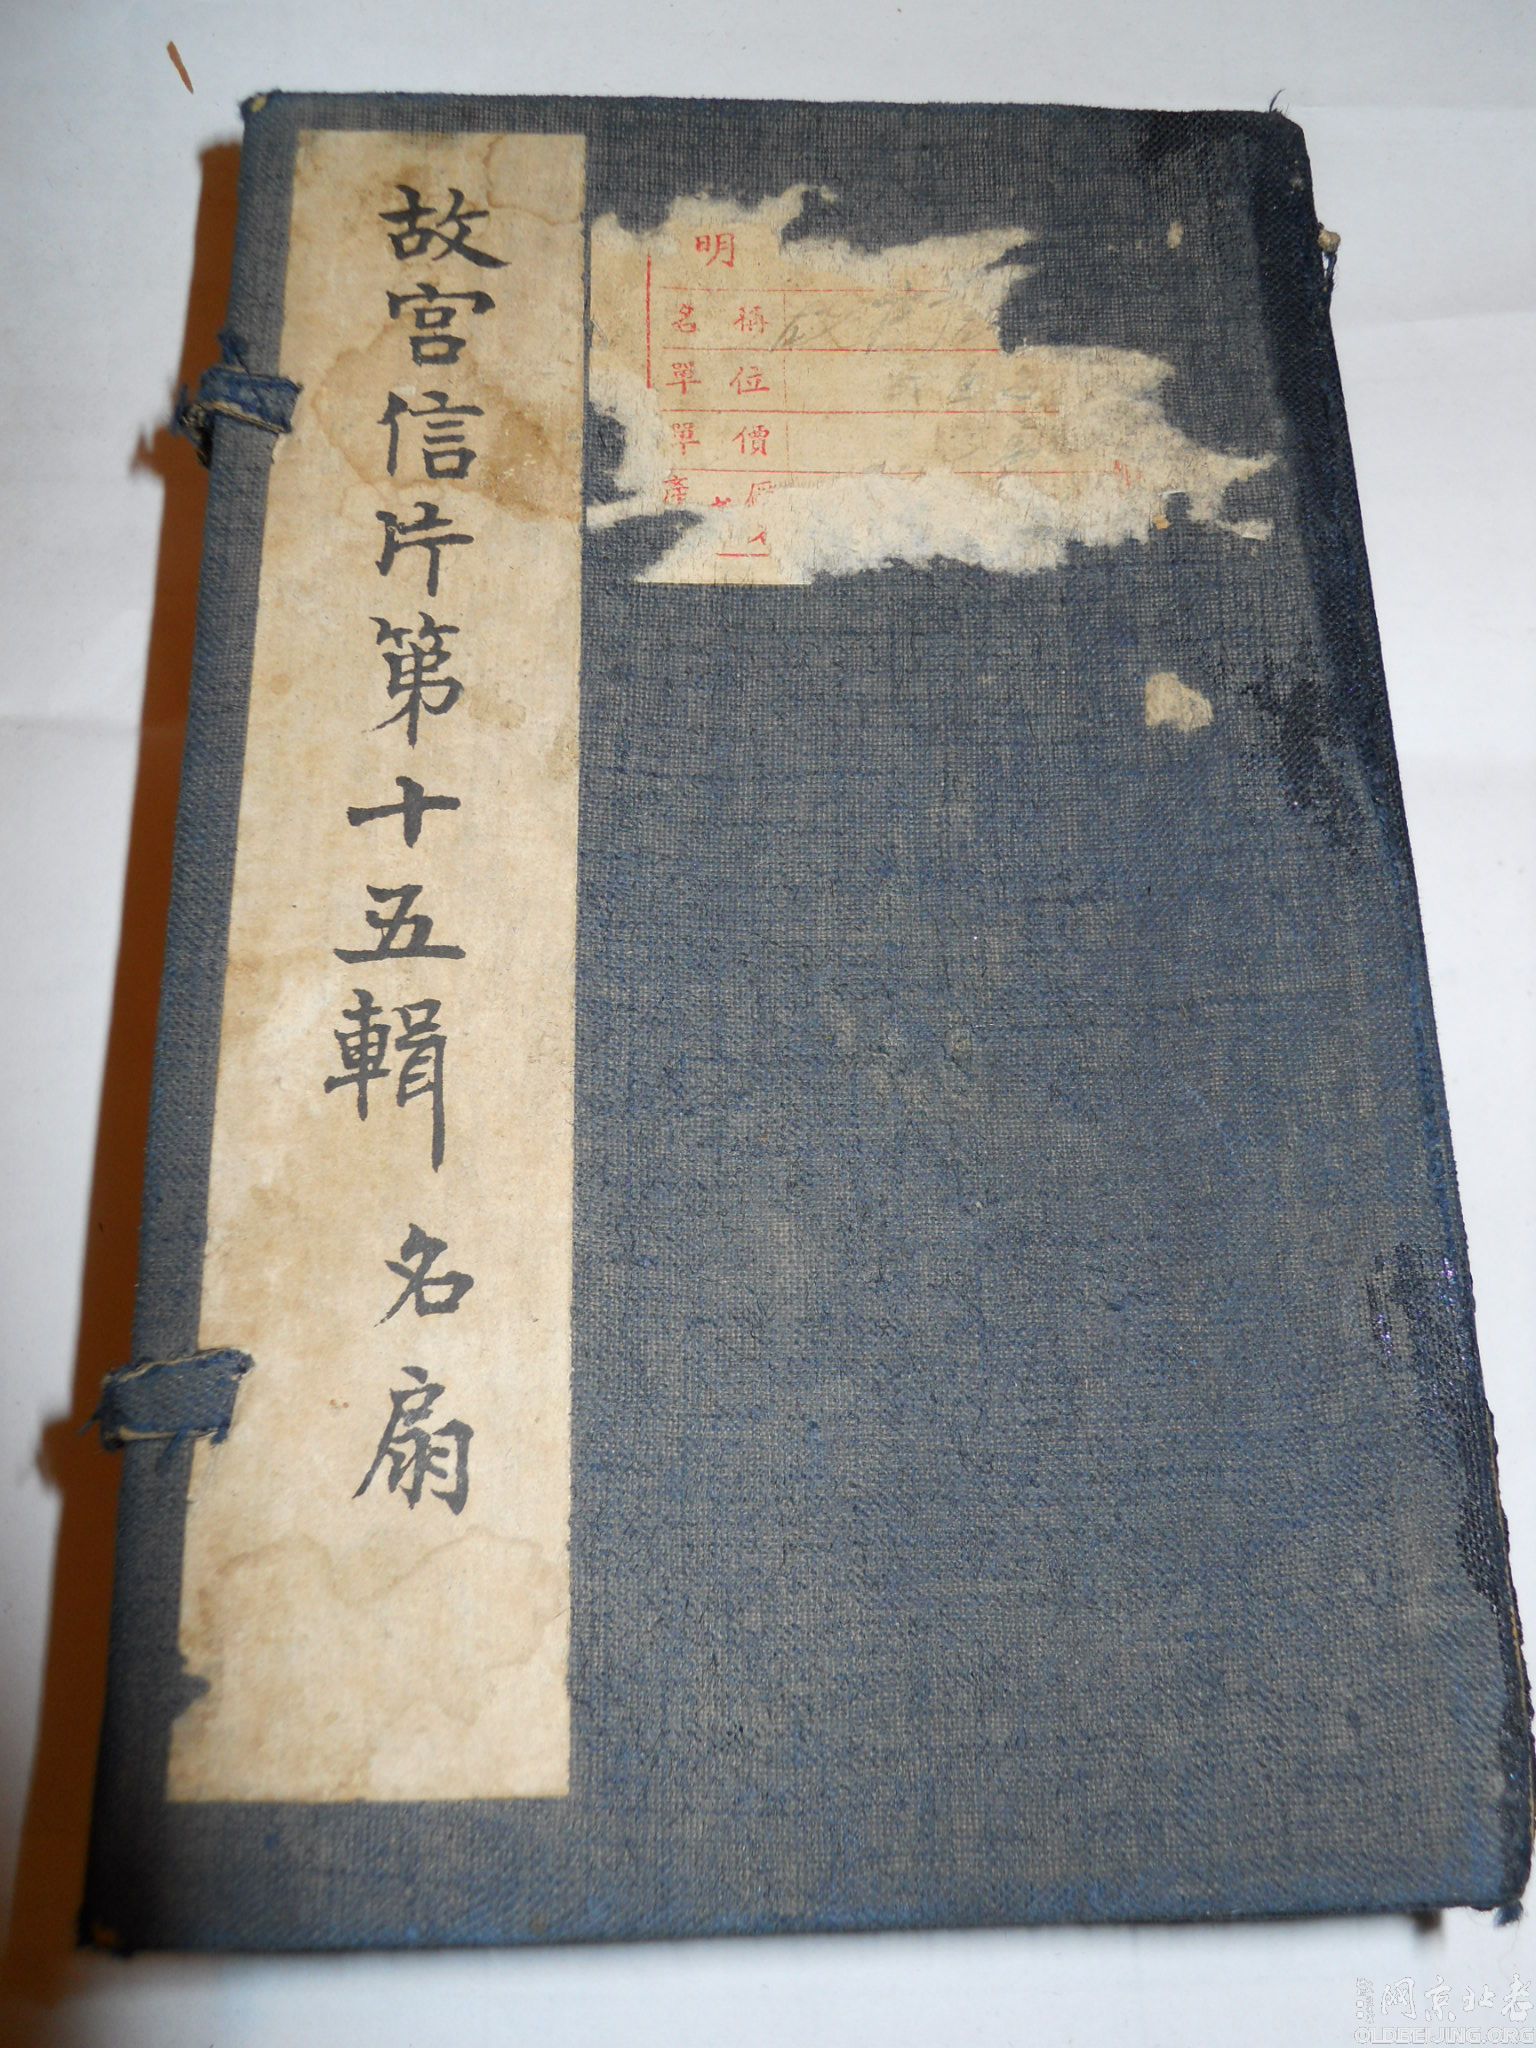 故宮信片第十五輯 名扇
明
名 稱
單 位
單 價
老北京网
OLDBEIJING.ORG